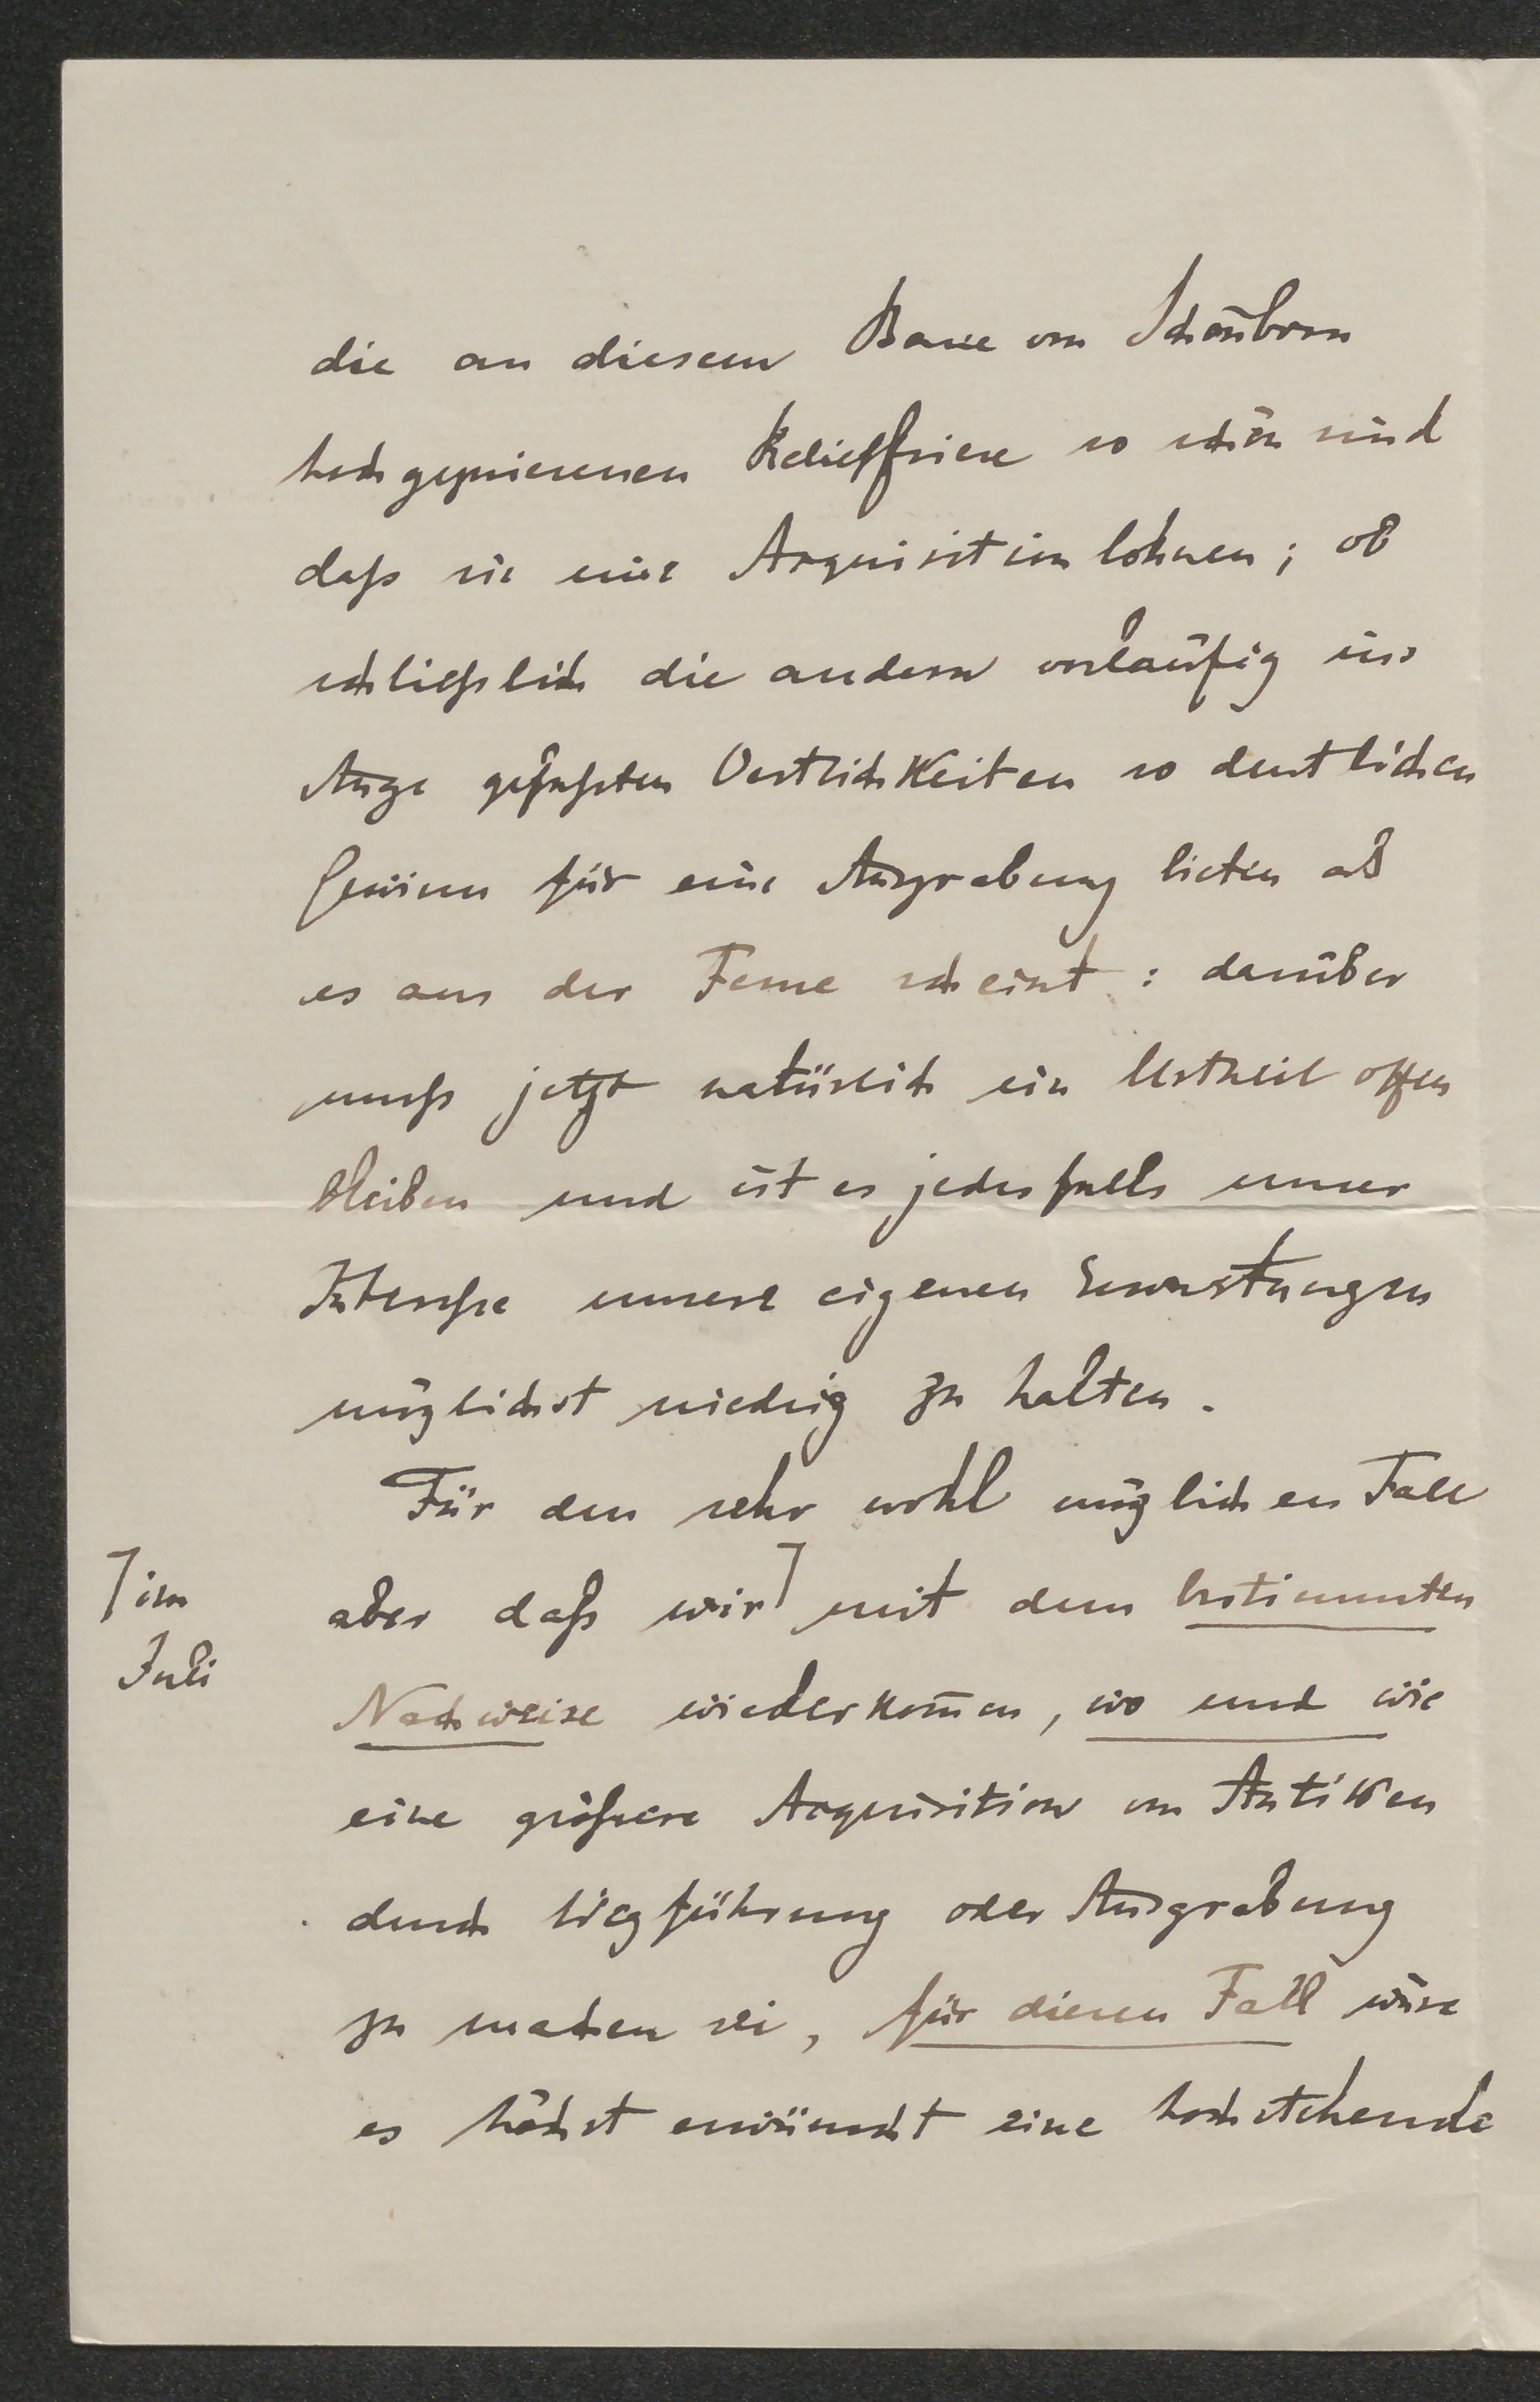 die an diesem Baue von Schönborn
hochgepriesenen Relieffriese so schön sind
daß sie eine Acquisition lohnen; ob
schließlich die andern vorläufig ins
Auge gefaßten Oertlichkeiten so deutlichen
Gewinn für eine Ausgrabung bieten als
es aus der Ferne scheint: darüber
muß jetzt natürlich ein Urtheil offen
bleiben und ist es jedesfalls unser
Interesse unsere eigenen Erwartungen
möglichst niedrig zu halten.
Für den sehr wohl möglichen Fall
aber daß wir ⌉ mit dem bestimmten
⌉ im
Juli
Nachweise wiederkom̄en, wo und wie
eine größere Acquisition von Antiken
durch Wegführung oder Ausgrabung
zu machen sei, für diesen Fall wäre
es höchst erwünscht eine hochstehende